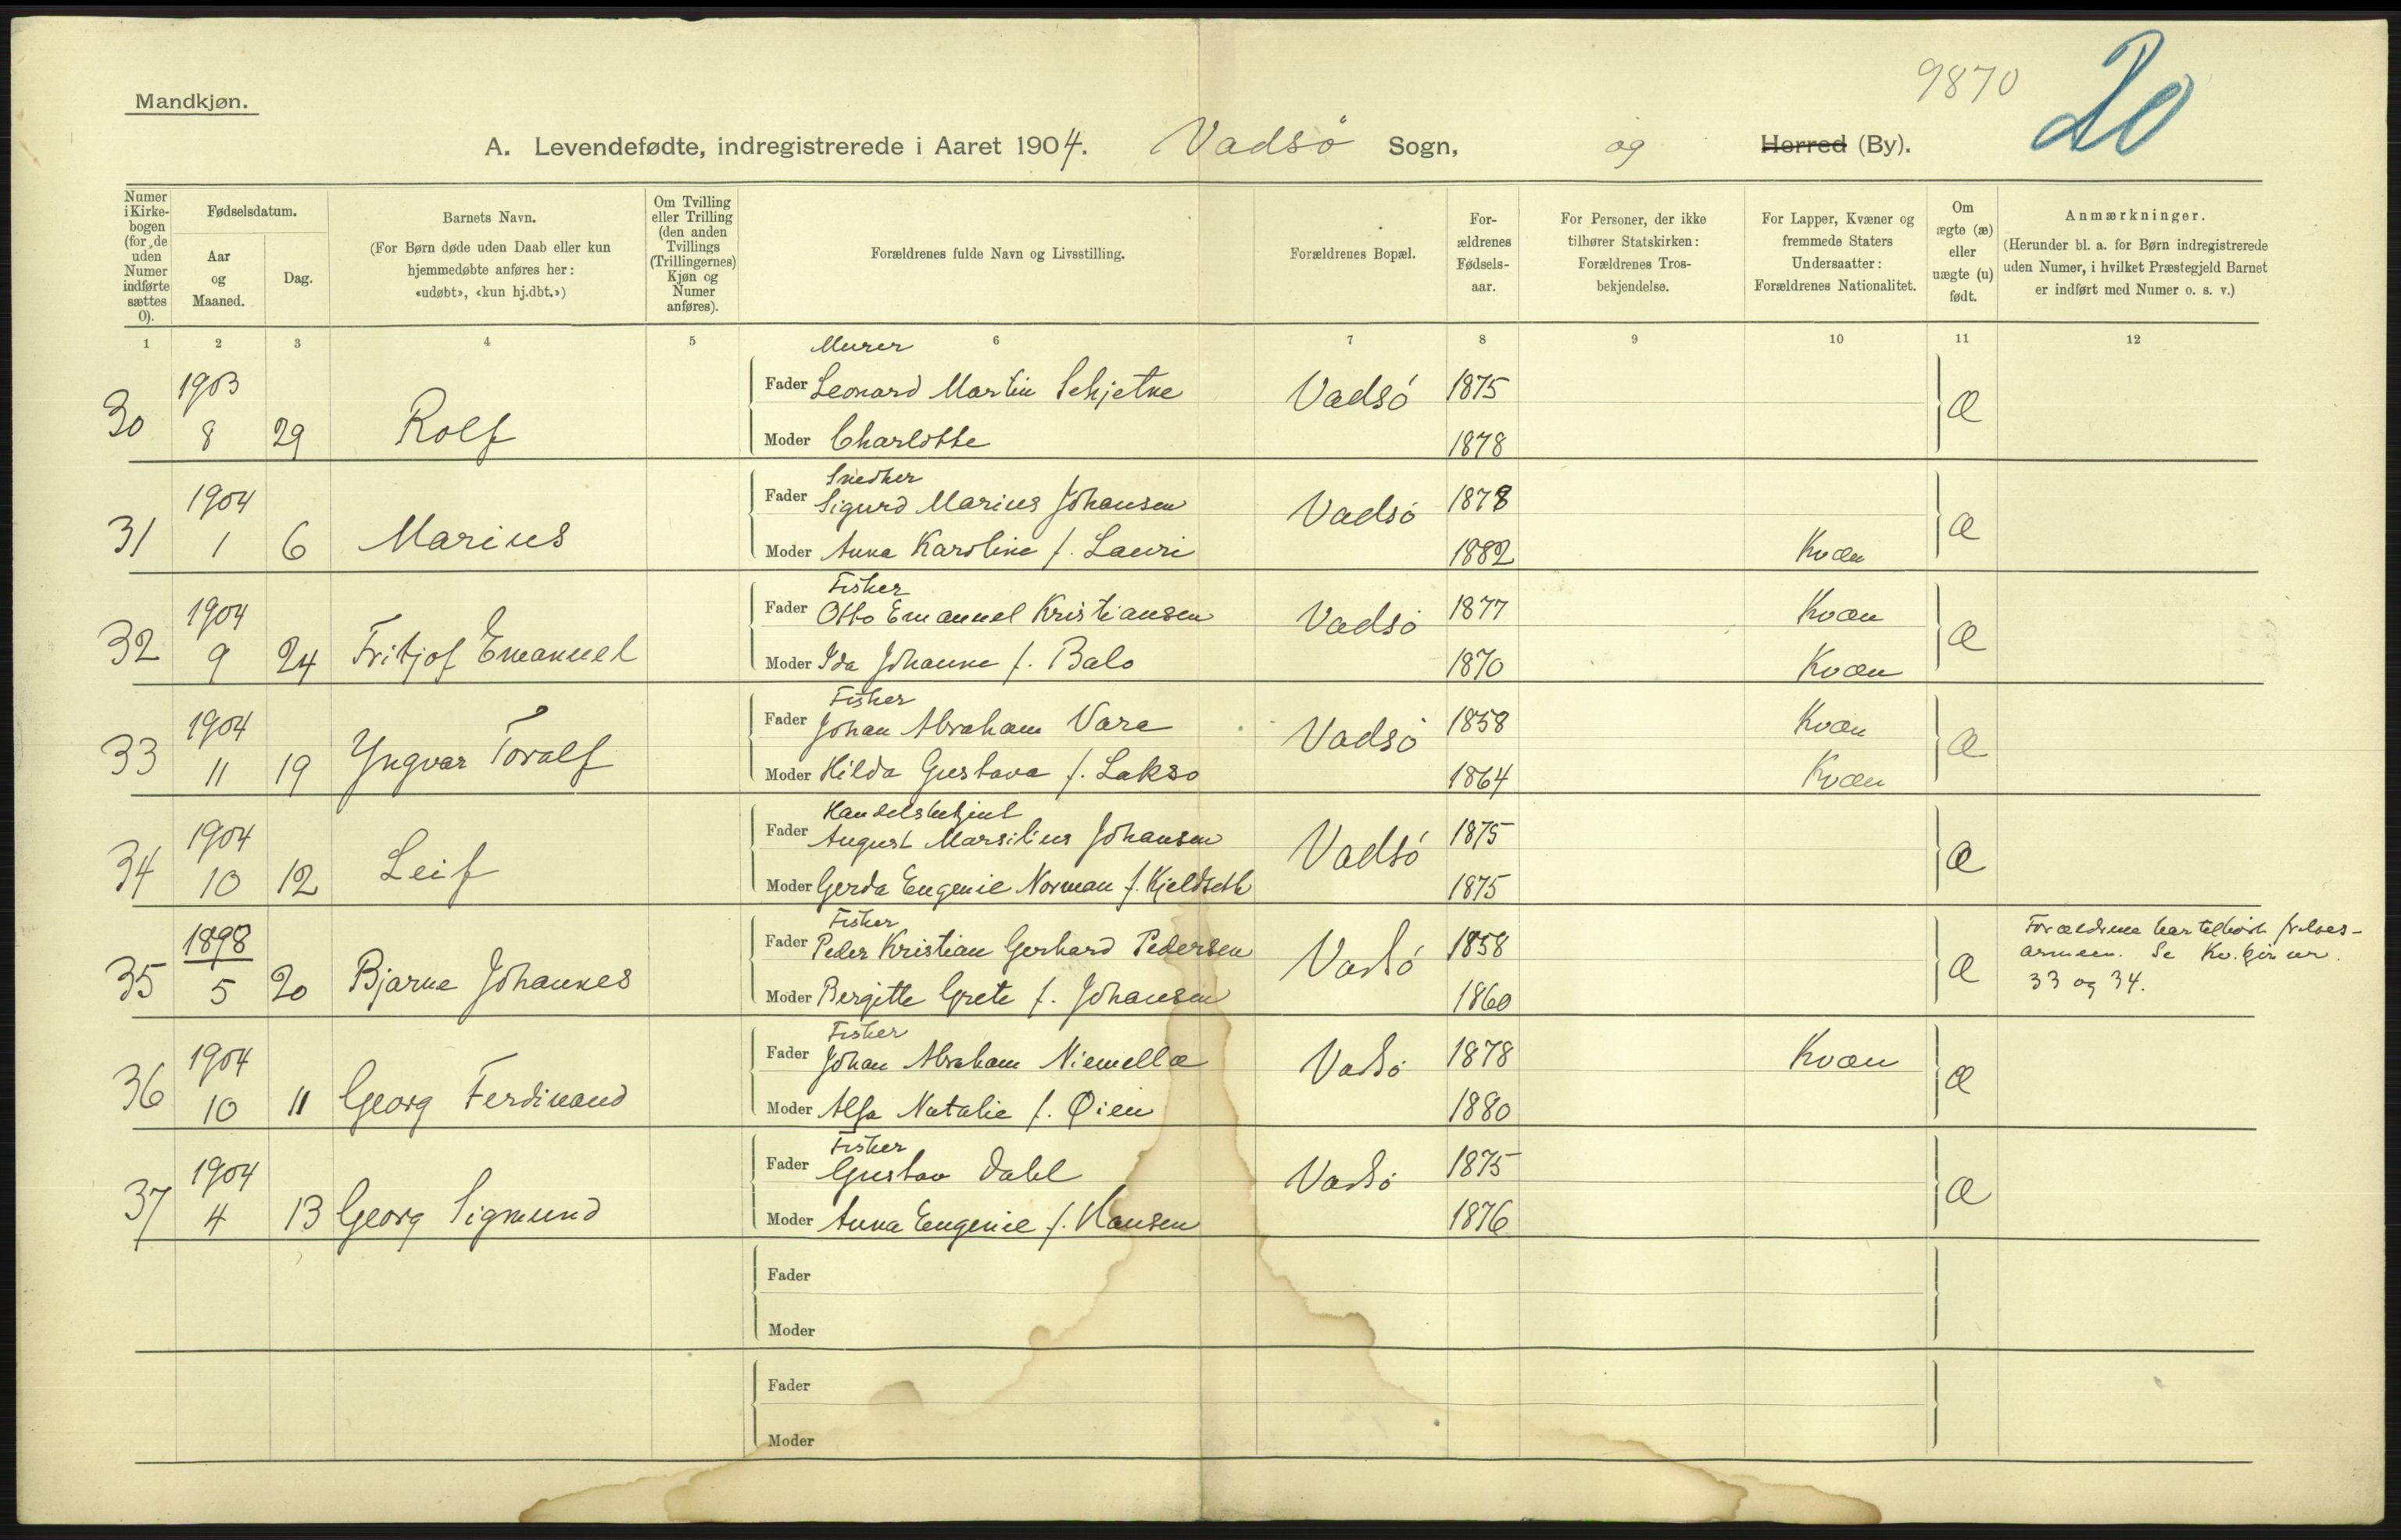 9870
20
Mandkjøn.
A. Levendefødte, indregistrerede i Aaret 1904. Vadsö Sogn, og Herred (By).
Numer i Kirkebogen (for de uden Numer indførte sættes 0).
Fødselsdatum.
Aar og Maaned.
Dag.
Barnets Navn.
(For Børn døde uden Daab eller kun hjemmedøbte anføres her: «udøbt», «kun hj.dbt.»)
Om Tvilling eller Trilling (den anden Tvillings (Trillingernes) Kjøn og Numer anføres).
Forældrenes fulde Navn og Livsstilling.
Forældrenes Bopæl.
For-ældrenes Fødsels-aar.
For Personer, der ikke tilhører Statskirken: Forældrenes Tros-bekjendelse.
For Lapper, Kvæner og fremmede Staters Undersaatter: Forældrenes Nationalitet.
Om ægte (æ) eller uægte (u) født.
Anmærkninger.
(Herunder bl. a. for Børn indregistrerede uden Numer, i hvilket Præstegjeld Barnet er indført med Numer o. s. v.)
1 2 3 4 5 6 7 8 9 10 11 12
Murer
30 1903 8 29 Rolf Fader Leonard Martin Schjetne Vadsö 1875 æ
Moder Charlotte 1878
Snedker
31 1904 1 6 Marius Fader Sigurd Marius Johansen Vadsö 1878 æ
Moder Anna Karoline f. Lauri 1882 Kvæn
Fisker
32 1904 9 24 Fritjof Emanuel Fader Otto Emanuel Kristiansen Vadsö 1877 Kvæn æ
Moder Ida Johanne f. Balo 1870 Kvæn
Fisker
33 1904 11 19 Yngvar Toralf Fader Johan Abraham Vara Vadsö 1858 Kvæn æ
Moder Hilda Gustava f. Lakso 1864 Kvæn
Handelsbetjent
34 1904 10 12 Leif Fader August Marsilius Johansen Vadsö 1875 æ
Moder Gerda Eugenie Norman f. Kjeldseth 1875
Fisker
35 1898 5 20 Bjarne Johannes Fader Peder Kristian Gerhard Pedersen Vadsö 1858 æ
Moder Bergitte Grete f. Johansen 1860
Forældrene har tilhört frelses-
armeen. Se Kv.kjön nr.
33 og 34.
Fisker
36 1904 10 11 Georg Ferdinand Fader Johan Abraham Niemella Vadsö 1878 Kvæn æ
Moder Alfa Natalie f. Öien 1880
Fisker
37 1904 4 13 Georg Sigmund Fader Gustav Dahl Vadsö 1875 æ
Moder Anna Eugenie f. Hansen 1876
Fader
Moder
Fader
Moder